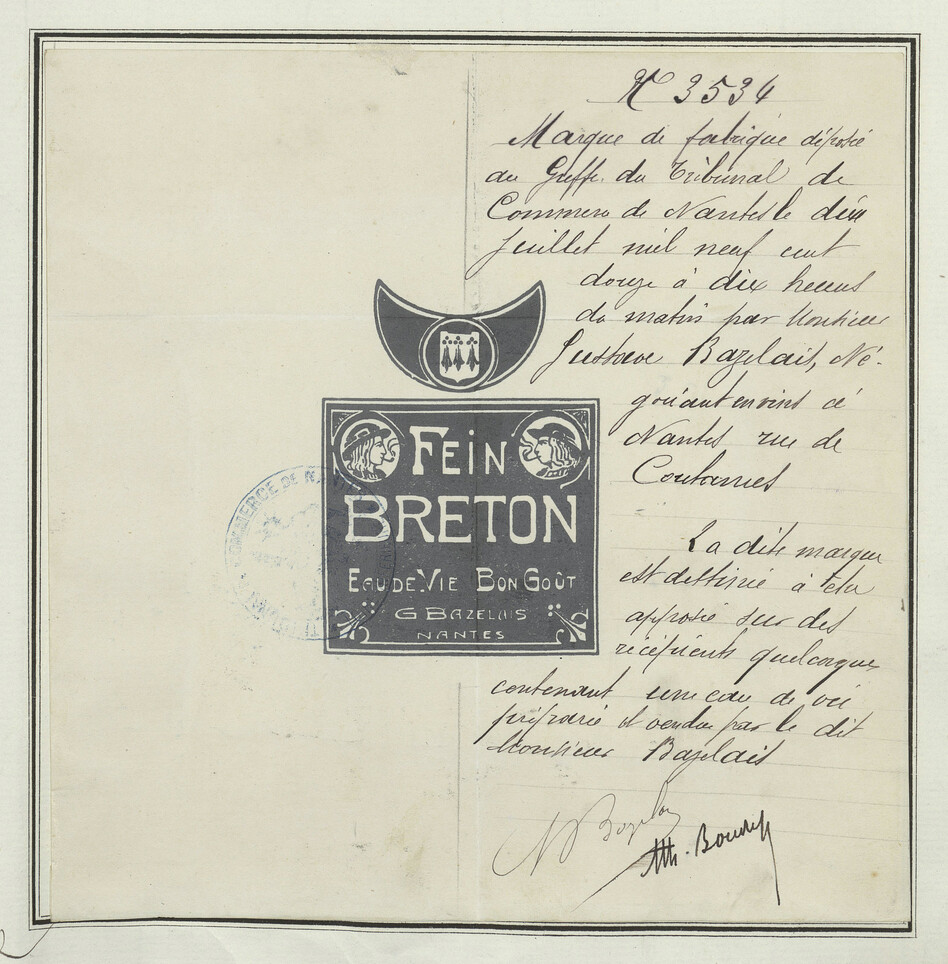 N 3534
Marque de fabrique déposée
au Greffe du Tribunal de
Commerce de Nantes le deux
Juillet mil neuf cent
douze à dix heures
du matin par Monsieur
Gustave Bazelais, Né-
gociant en vins à
Nantes rue de
Coutances
La dite marque
est destinée à être
apposée sur des
récipients quelconques
contenant une eau de vie
préparée et vendue par le dit
Monsieur Bazelais
FEIN
BRETON
EAU DE VIE BON GOÛT
G BAZELAIS
NANTES
COMMERCE DE NANTES